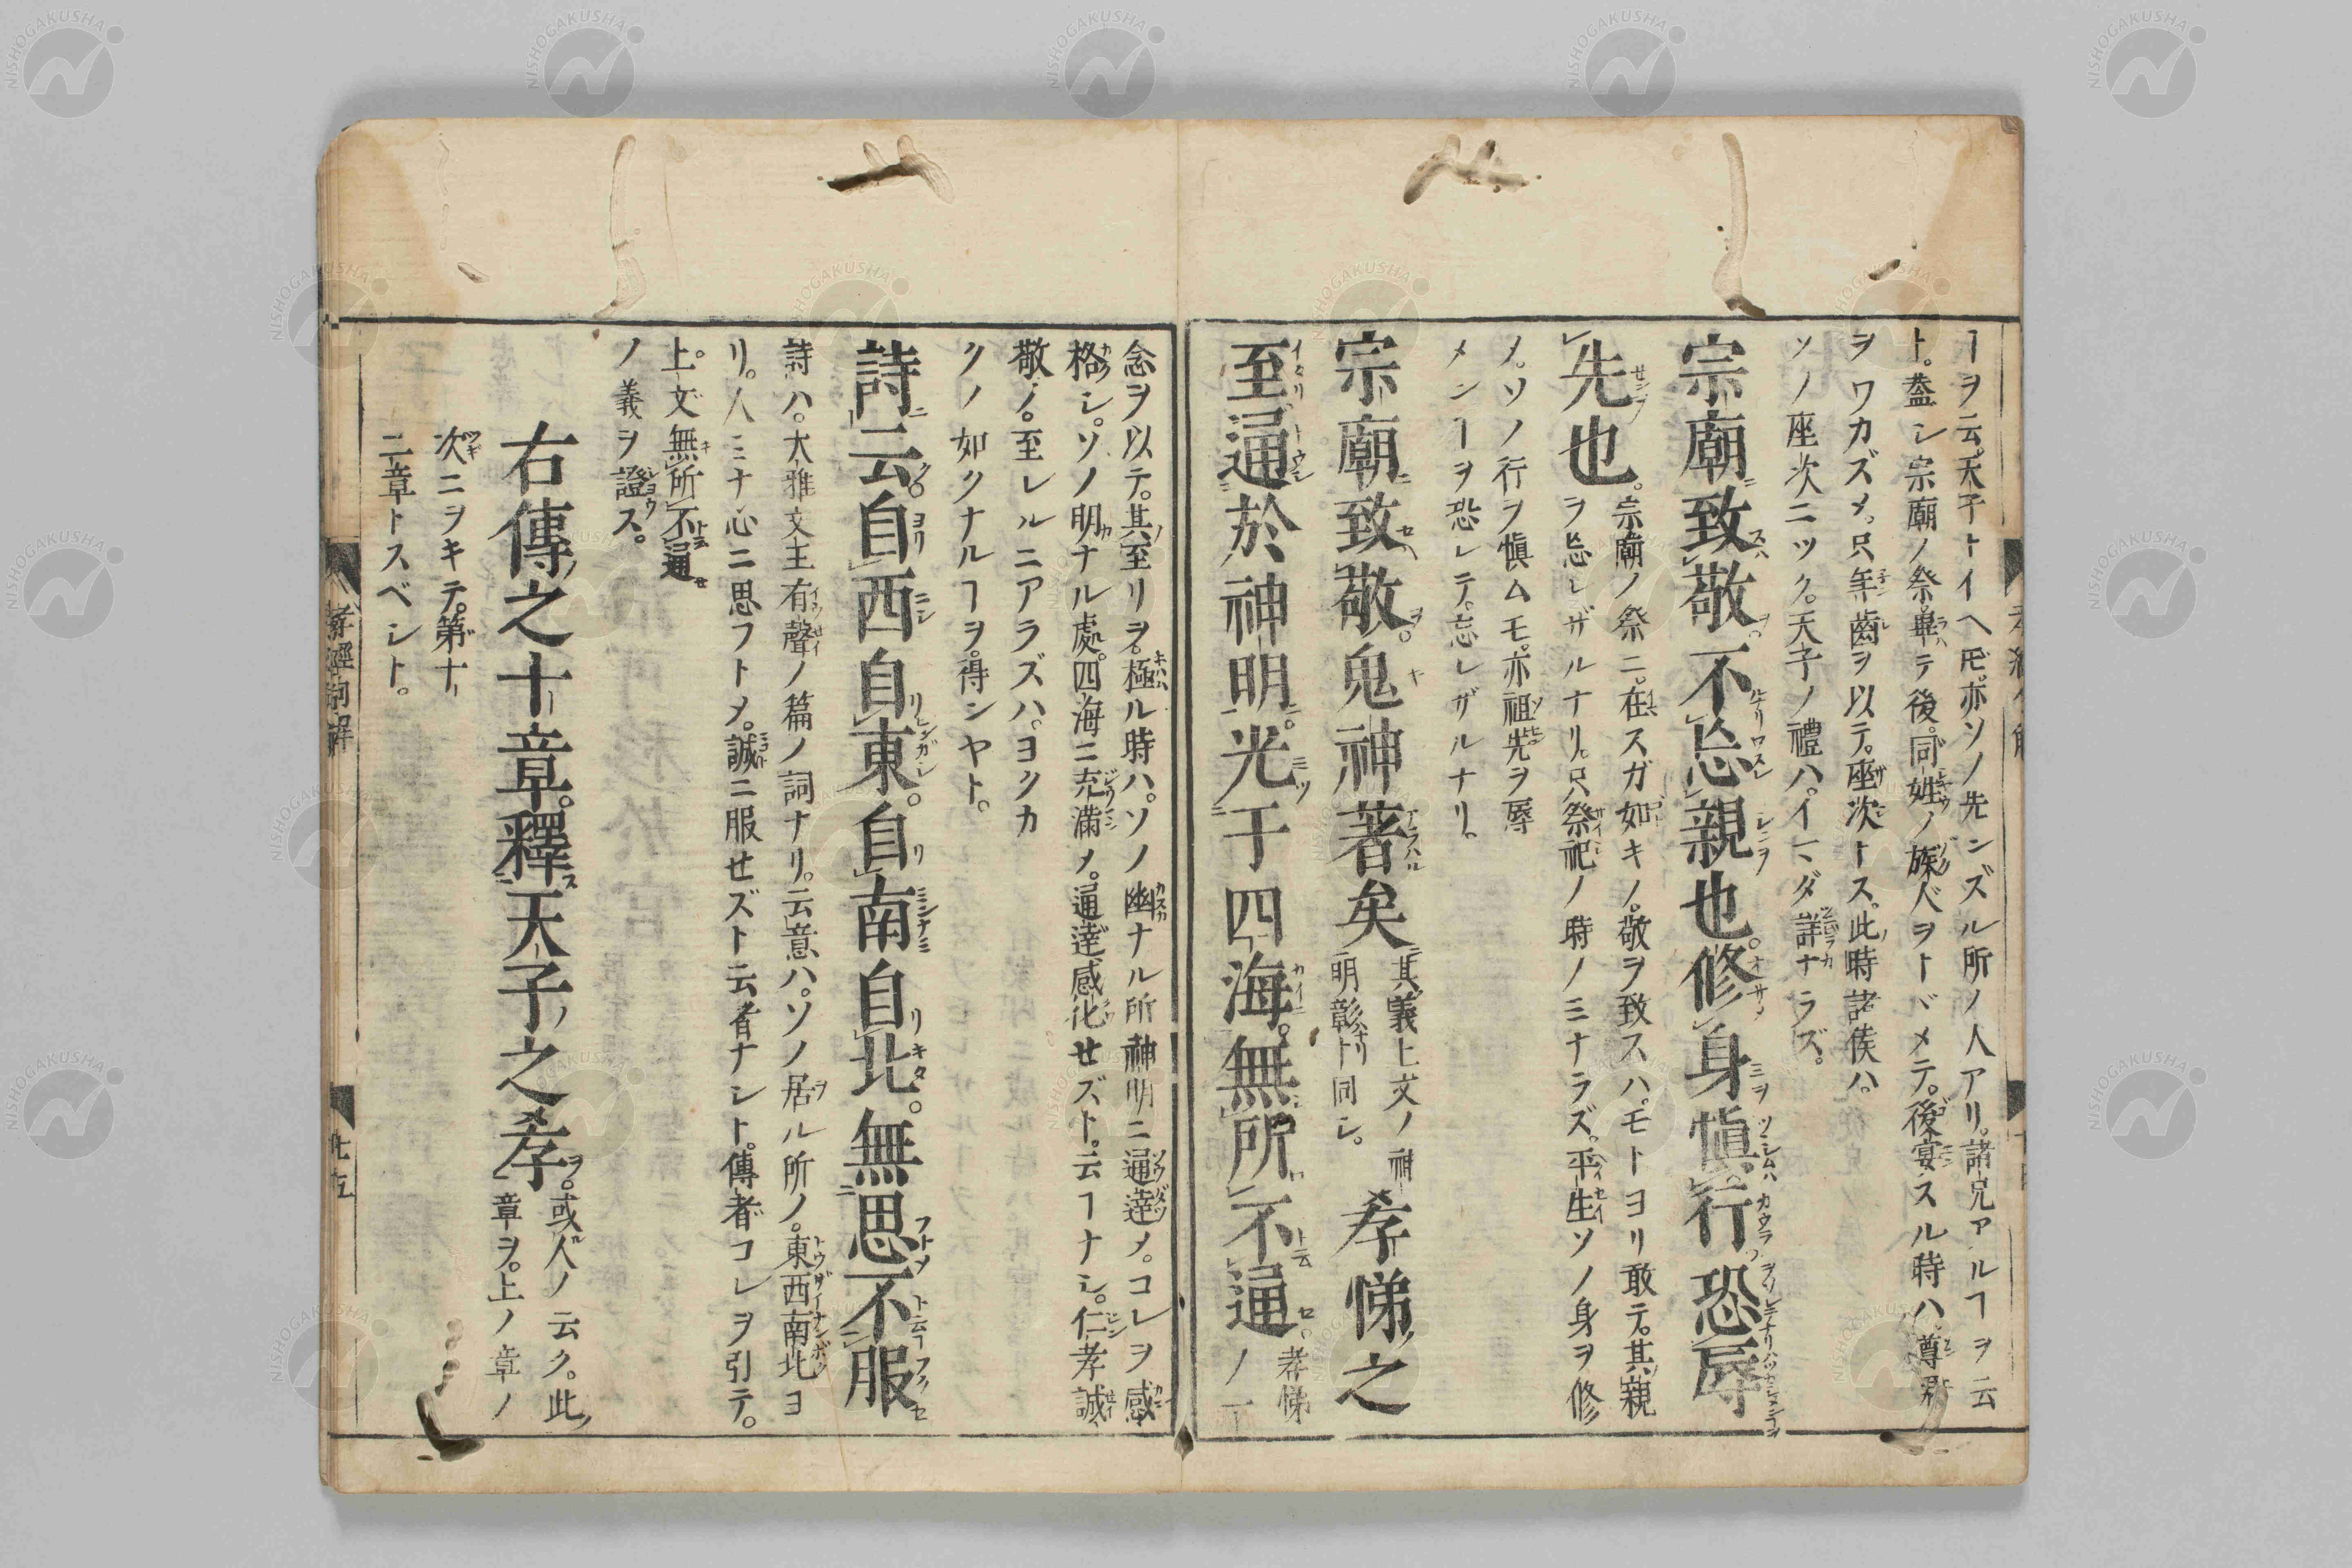 ヿヲ云。天子トイヘ𪜈。亦ソノ先ンズル所ノ人アリ。諸兄アルヿヲ云
ト。蓋シ宗廟ノ祭畢テ後。同姓ノ族人ヲトヾメテ。後宴スル時ハ。尊卑
ヲワカズ〆。只年齒ヲ以テ。座次トス。此時諸侯ハ。
ソノ座次ニツク。天子ノ禮ハ。イマダ詳ナラズ。
宗廟致敬。不忘親也。修身愼行恐辱
先也。宗廟ノ祭ニ。在スガ如キノ。敬ヲ致スハ。モトヨリ敢テ。其親
ヲ忘レザルナリ。只祭祀ノ時ノミナラズ。平生ソノ身ヲ修
〆。ソノ行ヲ愼ムモ。亦祖先ヲ辱
メンヿヲ恐レテ。忘レザルナリ。
宗廟致敬。鬼神著矣其義上文ノ神明彰ト同シ。孝悌之
至通於神明。光于四海。無所不通孝悌ノ一
念ヲ以テ。其至リヲ。極ル時ハ。ソノ幽ナル所神明ニ通達〆。コレヲ感
格シ。ソノ明ナル處。四海ニ充滿〆。通達感化せズト。云ヿナシ。仁孝誠
敬ノ。至レルニアラズハ。ヨクカ
クノ如クナルヿヲ。得ンヤト。
詩云。自西自東。自南自北。無思不服
詩ハ。大雅文王有聲ノ篇ノ詞ナリ。云意ハ。ソノ居ル所ノ。東西南北ヨ
リ。人ミナ心ニ思フト〆。誠ニ服せズト云者ナシト。傳者コレヲ引テ。
上文無所不通
ノ義ヲ證ス。
右傳之十章。釋天子之孝。或人ノ云ク。此
章ヲ。上ノ章ノ
次ニヲキテ。第十
二章トスベシト。
孝經詞解